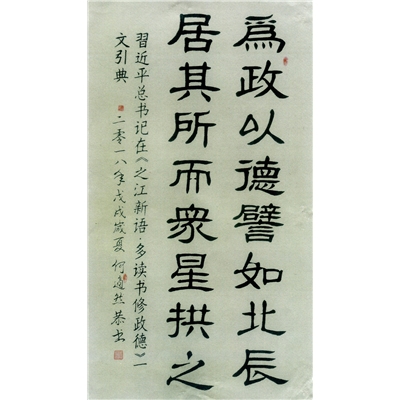 為政以德譬如北辰
居其所而衆星拱之
習近平总书记在《之江新语·多读书修政德》一
文引典
二零一八年戊戌嵗夏何
然恭书